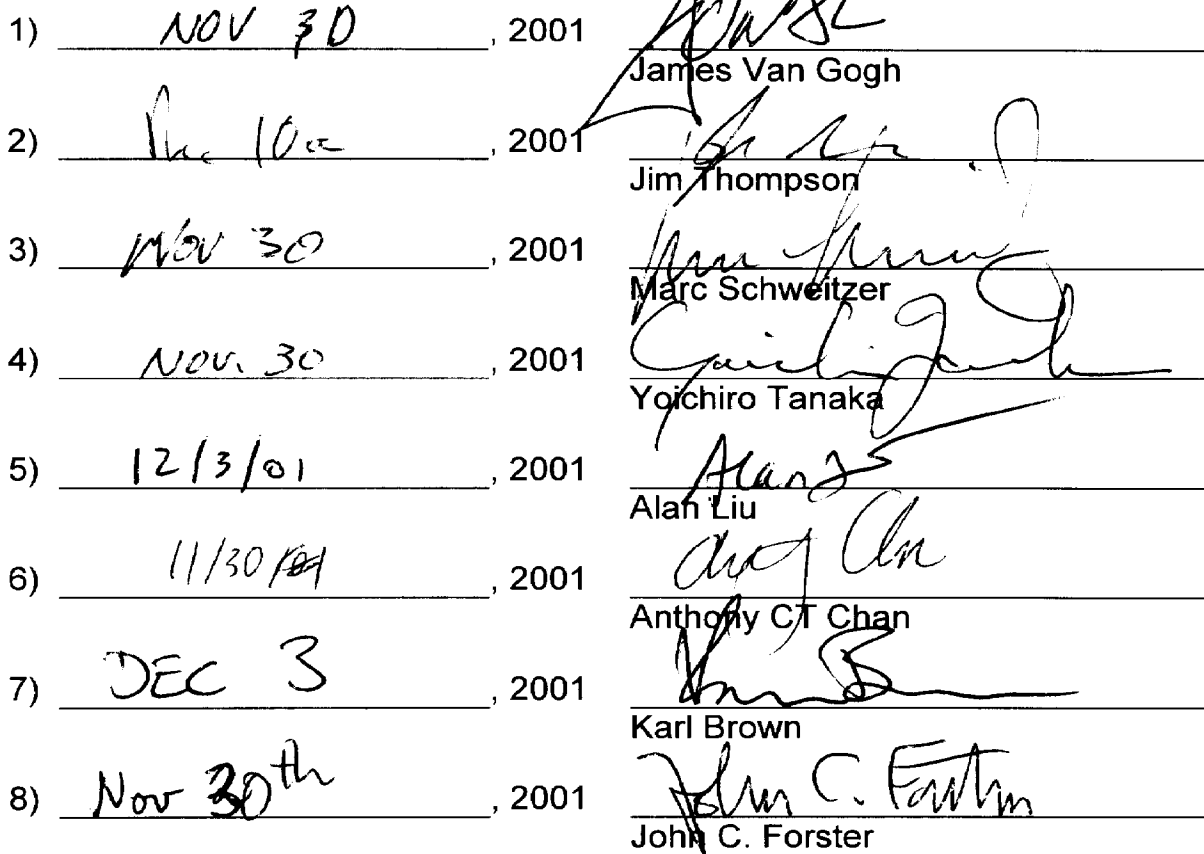 1) NOV 30, 2001
James Van Gogh
2) Dec 10, 2001
Jim Thompson
3) Nov 30, 2001
Marc Schweitzer
4) Nov. 30, 2001
Yoichiro Tanaka
5) 12/3/01, 2001
Alan Liu
6) 11/30, 2001
Anthony CT Chan
7) DEC 3, 2001
Karl Brown
8) Nov 30th, 2001
John C. Forster